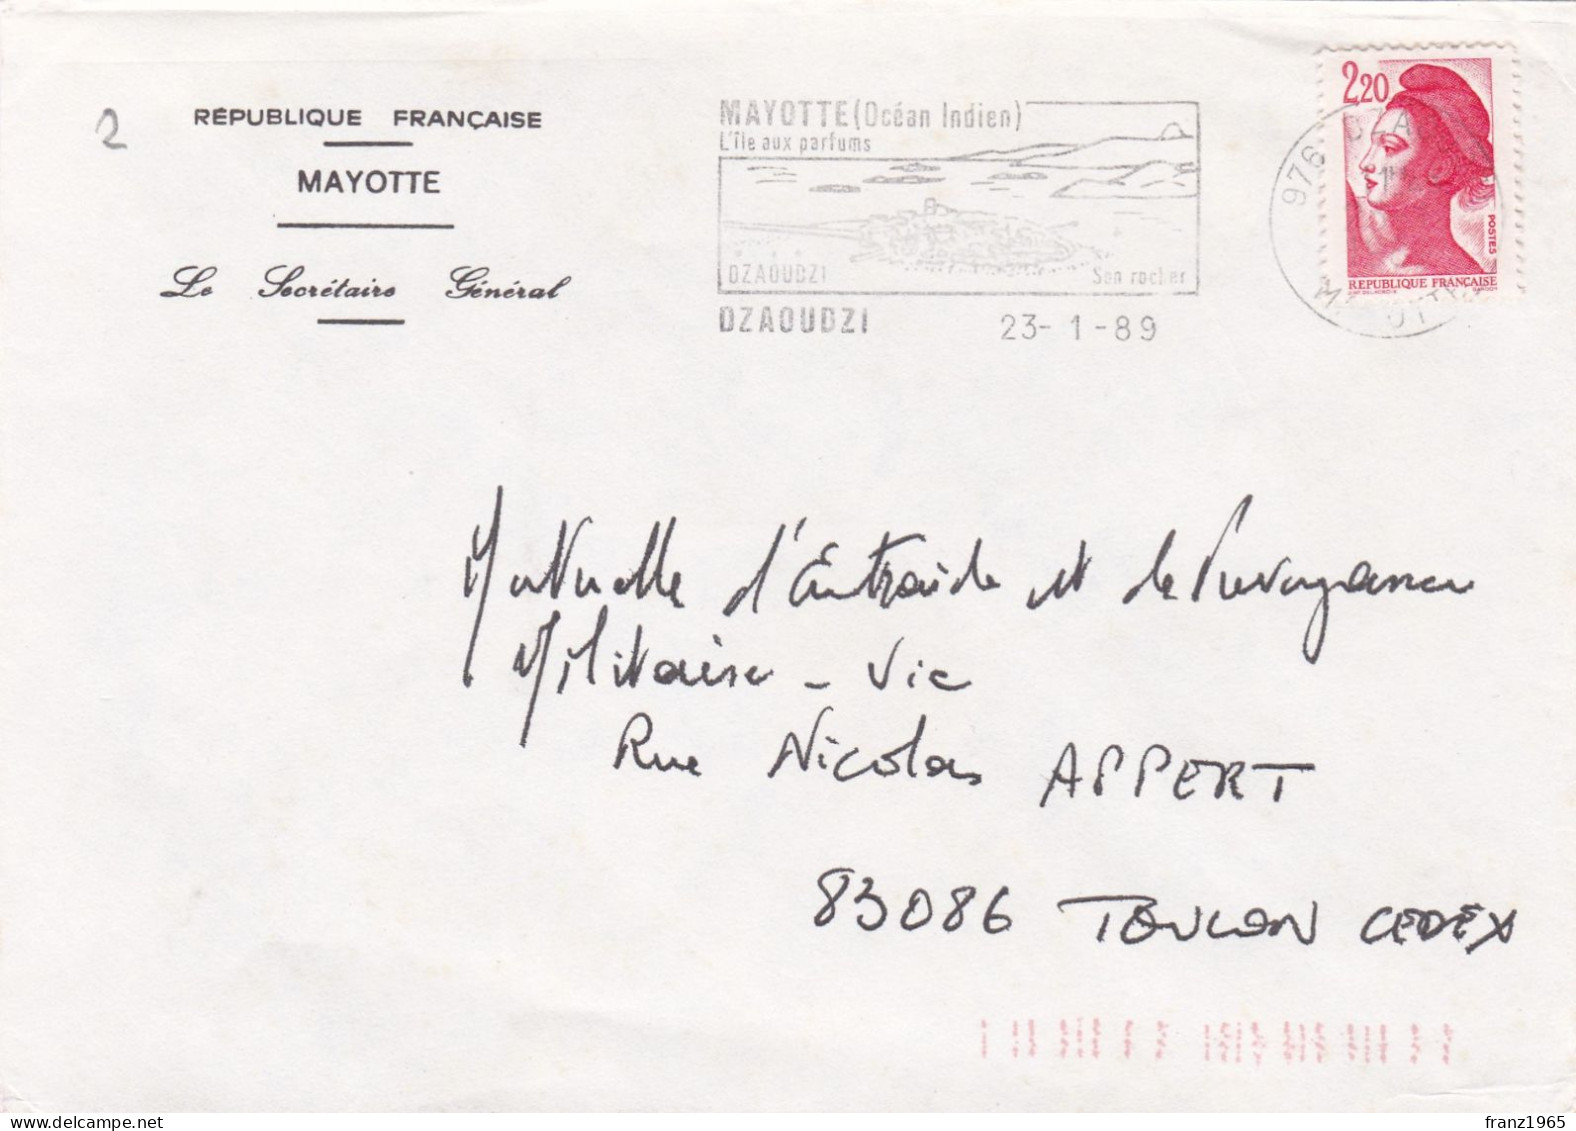 2
RÉPUBLIQUE FRANÇAISE
MAYOTTE
Le Secrétaire Général
MAYOTTE (Océan Indien)
L'île aux parfums
DZAOUDZI Son rocher
DZAOUDZI 23-1-89
976 DZA
MAYOTTE
2,20
POSTES
RÉPUBLIQUE FRANÇAISE
Mutuelle d'Entraide et de Prévoyance
Militaire - Vie
Rue Nicolas APPERT
83086 TOULON CEDEX
franz1965